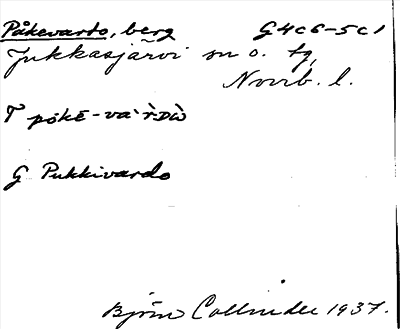 Påkevarto, berg G4c6-5c1
Jukkasjärvi sn o. tg,
Norrb. l.
T påkē-va`r̀Dẁ
G Pukkivardo
Björn Collinder 1937.